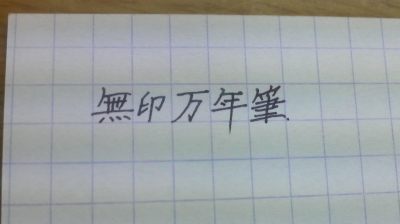 無印万年筆